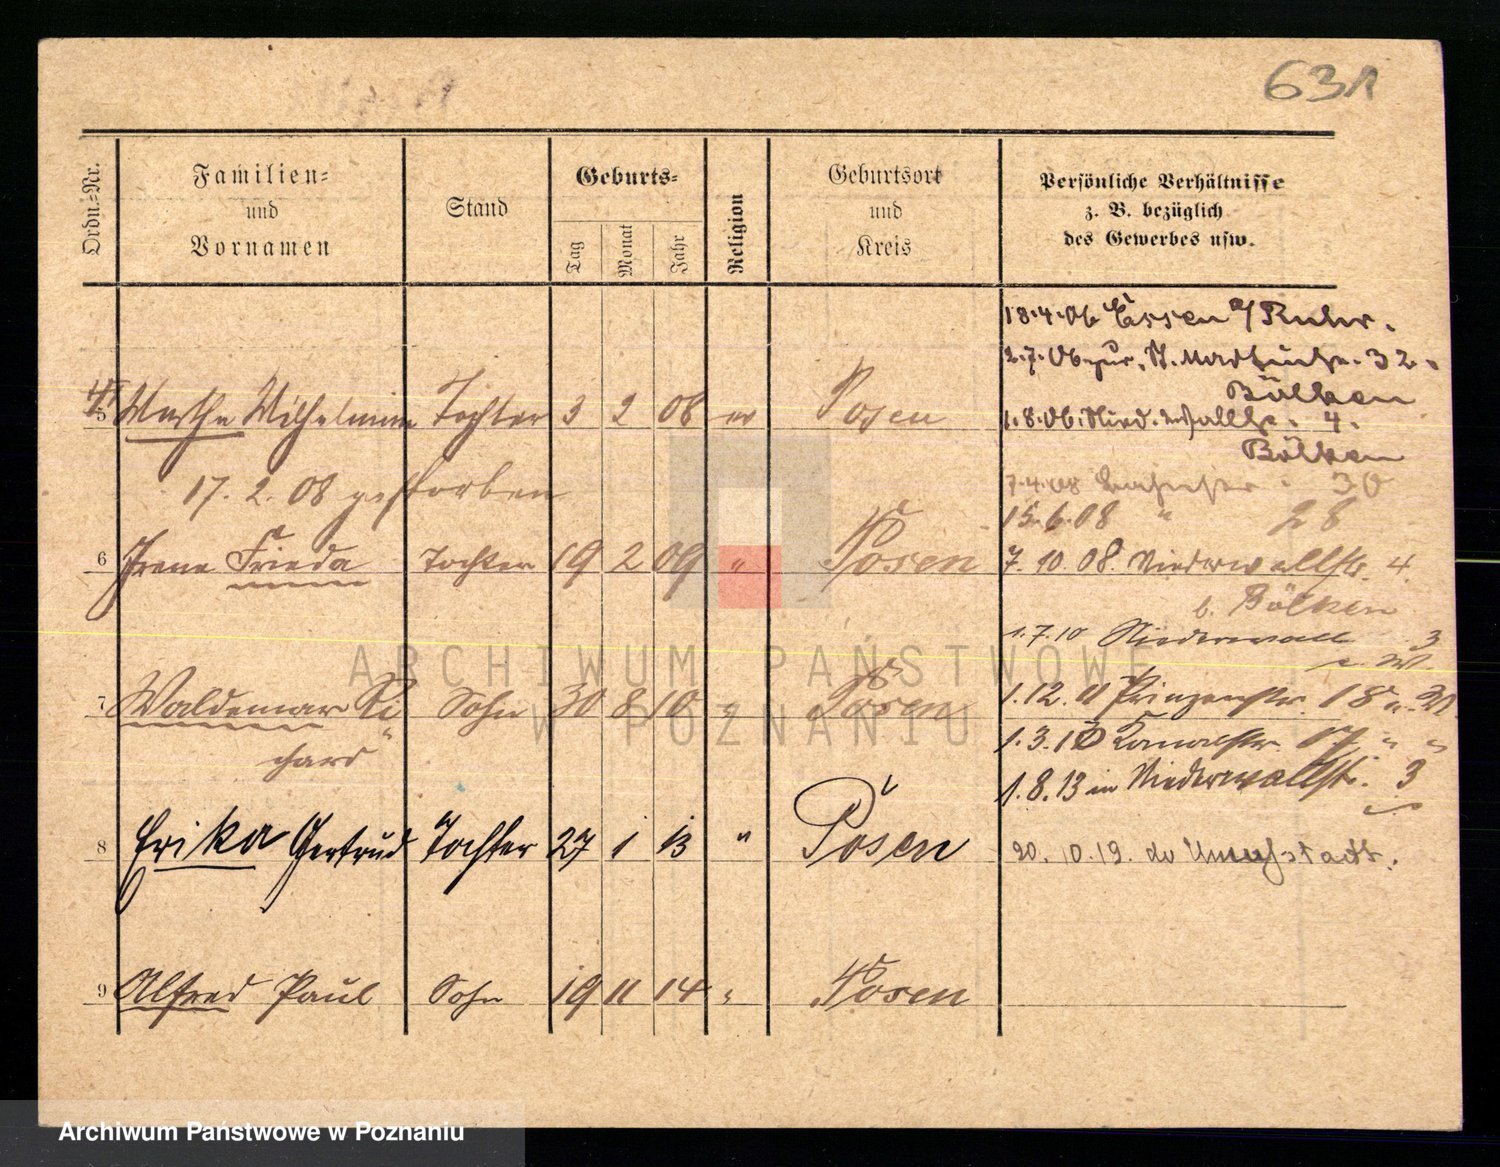 631
Ordn.-Nr.
Familien-
und
Vornamen
Stand
Geburts-
Tag
Monat
Jahr
Religion
Geburtsort
und
Kreis
Persönliche Verhältnisse
z. B. bezüglich
des Gewerbes usw.
18.4.06 Essen a/Ruhr.
2.7.06 zur. St. Martinstr. 32.
Bölken
5 Marthe Wilhelmine Tochter 3 2 08 ev Posen
1.8.06. Nied. Wallstr. 4.
Bölken
17. 2. 08 gestorben
7.4.08 30
15.6.08 " 28
6 Irene Frieda Tochter 19 2 09 " Posen
7.10.08. Niederwallstr. 4.
b. Bölken
1.7.10 Niederwall 3
7 Waldemar Ri Sohn 30 8 10 " Posen
chard
1.12.11 Prinzenstr. 18
1.3.13 Kanalstr. 17 " "
1.8.13 in Niederwallstr. 3
8 Erika Gertrud Tochter 27 1 13 " Posen
20.10.19. Unruhstadt.
9 Alfred Paul Sohn 19 11 14 " Posen
ARCHIWUM PAŃSTWOWE
W POZNANIU
Archiwum Państwowe w Poznaniu